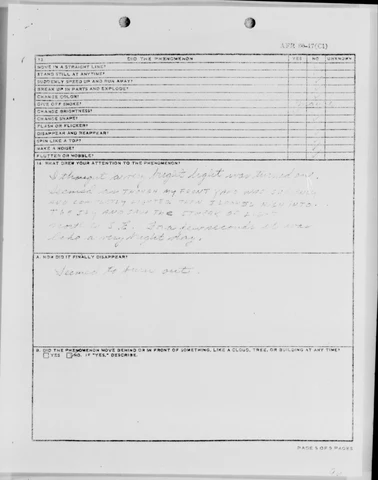 AFR 80-17(C1)
13. DID THE PHENOMENON YES NO UNKNOWN
MOVE IN A STRAIGHT LINE?
STAND STILL AT ANYTIME?
SUDDENLY SPEED UP AND RUN AWAY?
BREAK UP IN PARTS AND EXPLODE?
CHANGE COLOR?
GIVE OFF SMOKE?
CHANGE BRIGHTNESS?
CHANGE SHAPE?
FLASH OR FLICKER?
DISAPPEAR AND REAPPEAR?
SPIN LIKE A TOP?
MAKE A NOISE?
FLUTTER OR WOBBLE?
14. WHAT DREW YOUR ATTENTION TO THE PHENOMENON?
I thought a very bright light was turned on.
Seemed as though my front yard was
and completely lighted
AND SAW THE
In a few seconds it was
like a very bright day.
A. HOW DID IT FINALLY DISAPPEAR?
Seemed to burn out.
B. DID THE PHENOMENON MOVE BEHIND OR IN FRONT OF SOMETHING, LIKE A CLOUD, TREE, OR BUILDING AT ANY TIME?
YES NO. IF "YES," DESCRIBE.
PAGE 5 OF 5 PAGES